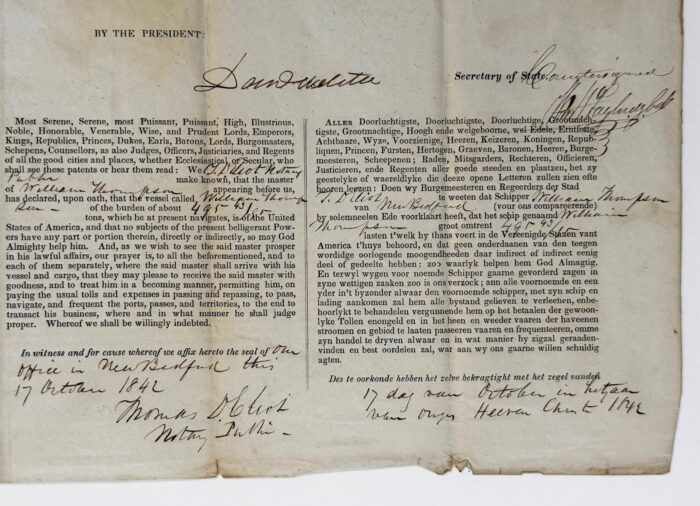 BY THE PRESIDENT:
Secretary of State.
Countersigned
Most Serene, Serene, most Puissant, Puissant, High, Illustrious,
Noble, Honorable, Venerable, Wise, and Prudent Lords, Emperors,
Kings, Republics, Princes, Dukes, Earls, Barons, Lords, Burgomasters,
Schepens, Counsellors, as also Judges, Officers, Justiciaries, and Regents
of all the good cities and places, whether Ecclesiastical or Secular, who
shall see these patents or hear them read: We T. D. Eliot Notary
Public make known, that the master
of William Thompson appearing before us,
has declared, upon oath, that the vessel called, William Thomp
son — of the burden of about 495 43/
tons, which he at present navigates, is of the United
States of America, and that no subjects of the present belligerant Pow-
ers have any part or portion therein, directly or indirectly, so may God
Almighty help him. And, as we wish to see the said master prosper
in his lawful affairs, our prayer is, to all the beforementioned, and to
each of them separately, where the said master shall arrive with his
vessel and cargo, that they may please to receive the said master with
goodness, and to treat him in a becoming manner, permitting him, on
paying the usual tolls and expenses in passing and repassing, to pass,
navigate, and frequent the ports, passes, and territories, to the end to
transact his business, where and in what manner he shall judge
proper. Whereof we shall be willingly indebted.
In witness and for cause whereof we affix hereto the seal of our
office in New Bedford this
17 October 1842
Thomas D. Eliot
Notary Public —
ALLER Doorluchtigste, Doorluchtige, Grootmach-
tigste, Grootmachtige, Hoogh ende welgeboorne, wel Edele, Erntfeste,
Achtbaare, Wyze, Voorzienige, Heeren, Keizeren, Koningen, Repub-
liquen, Princen, Fursten, Hertogen, Graeven, Baronen, Heeren, Burge-
meesteren, Scheepenen; Raden, Mitsgarders, Rechteren, Officieren,
Justicieren, ende Regenten aller goede steeden en plaatzen, het zy
geestelyke of waereldlyke die deeze opene Letteren zullen zien ofte
hooren lezen: Doen wy Burgemeesteren en Regeerders der Stad
T. D. Eliot te weeten dat Schipper William Thompson
van New Bedford (voor ons compareerende)
by solemneelen Ede voorklaart heeft, dat het schip genaamd William
Thompson groot omtrent 495 43/
lasten t'welk hy thans voert in de Vereenigde Staaten vant
America t'huys behoord, en dat geen onderdaanen van den teegen
wordidge oorlogende moogendheeden daar indirect of indirect eenig
deel of gedeelte hebben: zos waarlyk helpen hem God Almagtig.
En terwyl wygen voor noemde Schipper gaarne gevorderd zagen in
zyne wettigen zaaken zoo is ons verzock; aan alle voornoemde en een
yder in't byzonder alwaar den voornoemde schipper, met zyn schip en
lading aankomen zal hem alle bystand gelieven te verleenen, enbe-
hoorlykt te behandelen vergunnende hem op het betaalen der gewoon-
lyke Tollen enongeld en in het heen en weeder vaaren der haveenen
stroomen en gebied te laaten passeeren vaaren en frequenteeren, omme
zyn handel te dryven alwaar en in wat manier by zigzal geraaden-
vinden en best oordelen zal, war aan wy ons gaarne willen schuldig
agten.
Des te oorkonde hebben het zelve bekragtigt met het zegel vanden
17 dag van October in het jaar
van onzen Heeren Christ 1842